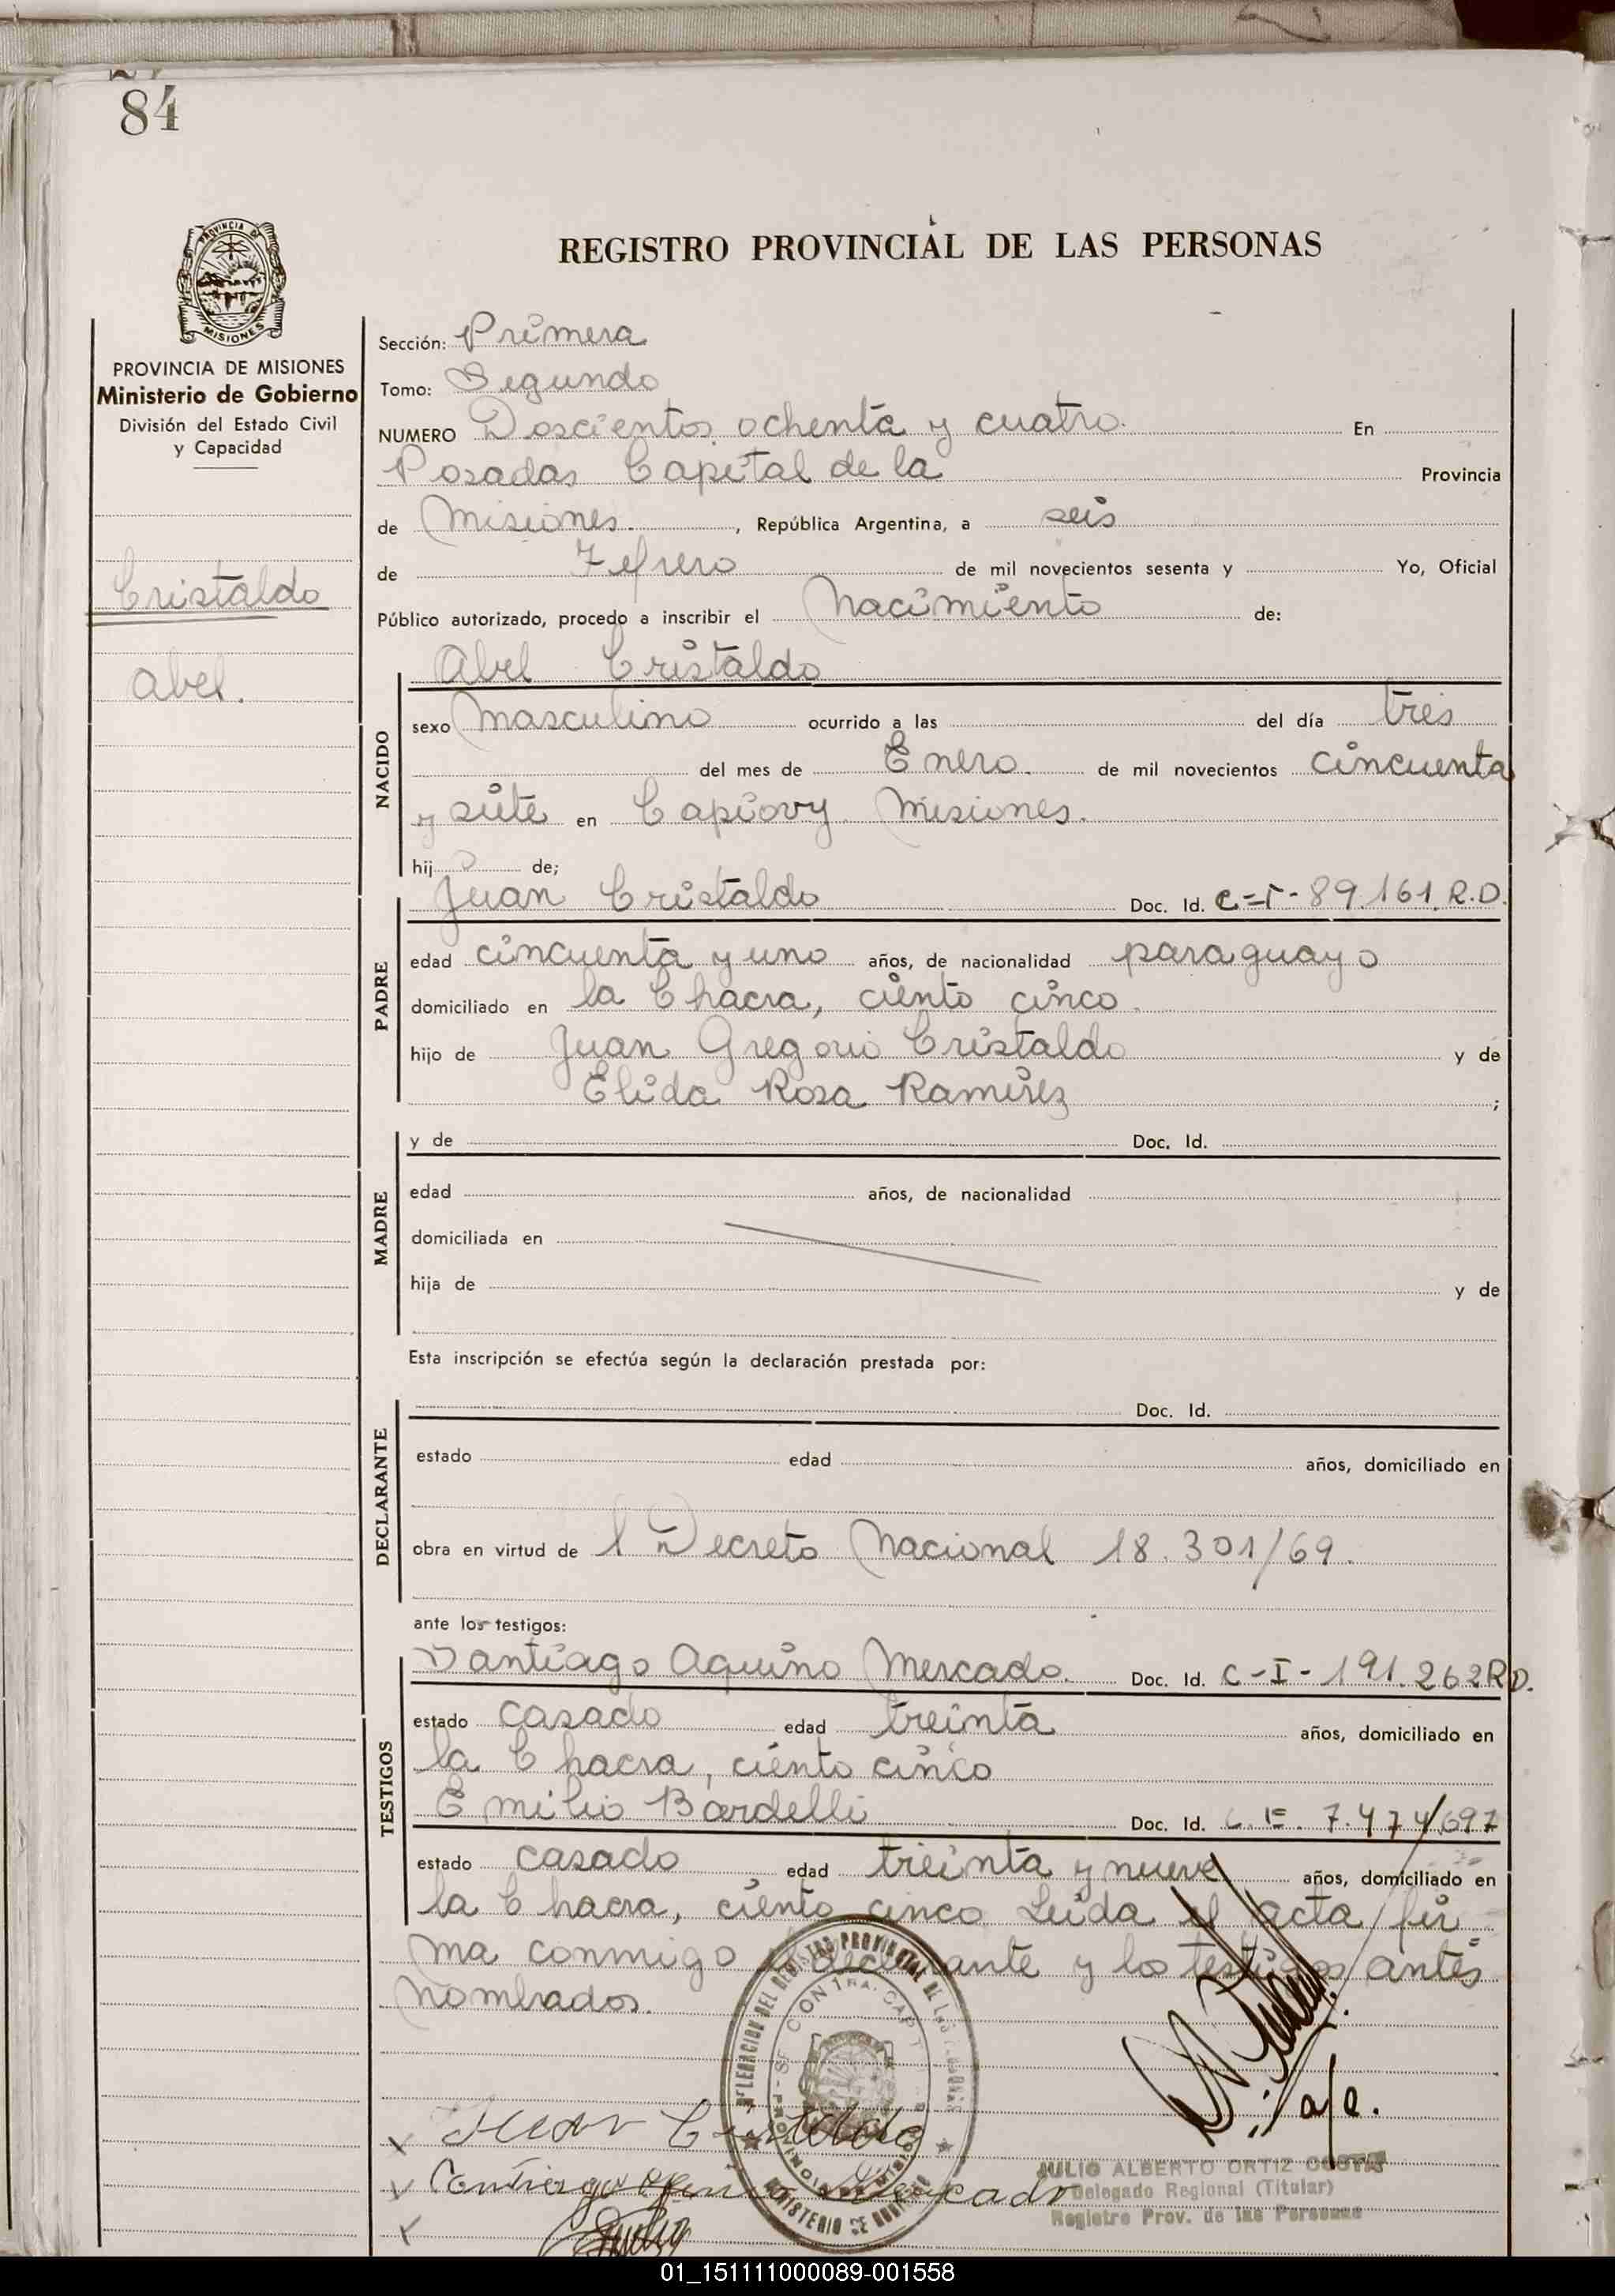 84
PROVINCIA DE
MISIONES
PROVINCIA DE MISIONES
Ministerio de Gobierno
División del Estado Civil
y Capacidad
Cristaldo
Abel.
REGISTRO PROVINCIAL DE LAS PERSONAS
Sección: Primera
Tomo: Segundo
NUMERO Doscientos ochenta y cuatro. En
Posadas Capital de la Provincia
de Misiones. , República Argentina, a seis
de Febrero de mil novecientos sesenta y Yo, Oficial
Público autorizado, procedo a inscribir el Nacimiento de:
Abel Cristaldo
NACIDO
sexo Masculino ocurrido a las del día tres
del mes de Enero. de mil novecientos cincuenta
y siete en Capiovy Misiones.
hij o de;
PADRE
Juan Cristaldo Doc. Id. C-I-89.161.R.D.
edad cincuenta y uno años, de nacionalidad paraguayo
domiciliado en la Chacra, ciento cinco.
hijo de Juan Gregorio Cristaldo y de
Elida Rosa Ramirez ;
MADRE
y de Doc. Id.
edad años, de nacionalidad
domiciliada en
hija de y de
Esta inscripción se efectúa según la declaración prestada por:
DECLARANTE
Doc. Id.
estado edad años, domiciliado en
obra en virtud de l Decreto Nacional 18.301/69.
ante los testigos:
TESTIGOS
Santiago Aquino Mercado. Doc. Id. C-I-191.262RD.
estado casado edad treinta años, domiciliado en
la Chacra, ciento cinco
Emilio Bardelli Doc. Id. L.E. 7.474.697
estado casado edad treinta y nueve años, domiciliado en
la Chacra, ciento cinco Leida el acta fir
ma conmigo el declarante y los testigos antes
nombrados.
Juan Cristaldo
a/c.
JULIO ALBERTO ORTIZ COSTA
Delegado Regional (Titular)
Registro Prov. de las Personas
01_151111000089-001558